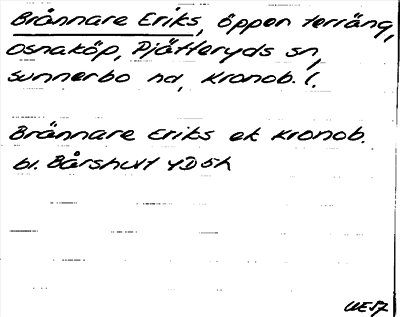 Brännare Eriks, öppen terräng,
Osnaköp, Pjätteryds sn,
Sunnerbo hd, Kronob. l.
Brännare Eriks ek Kronob.
bl. Bårshult 4D5h
UE57